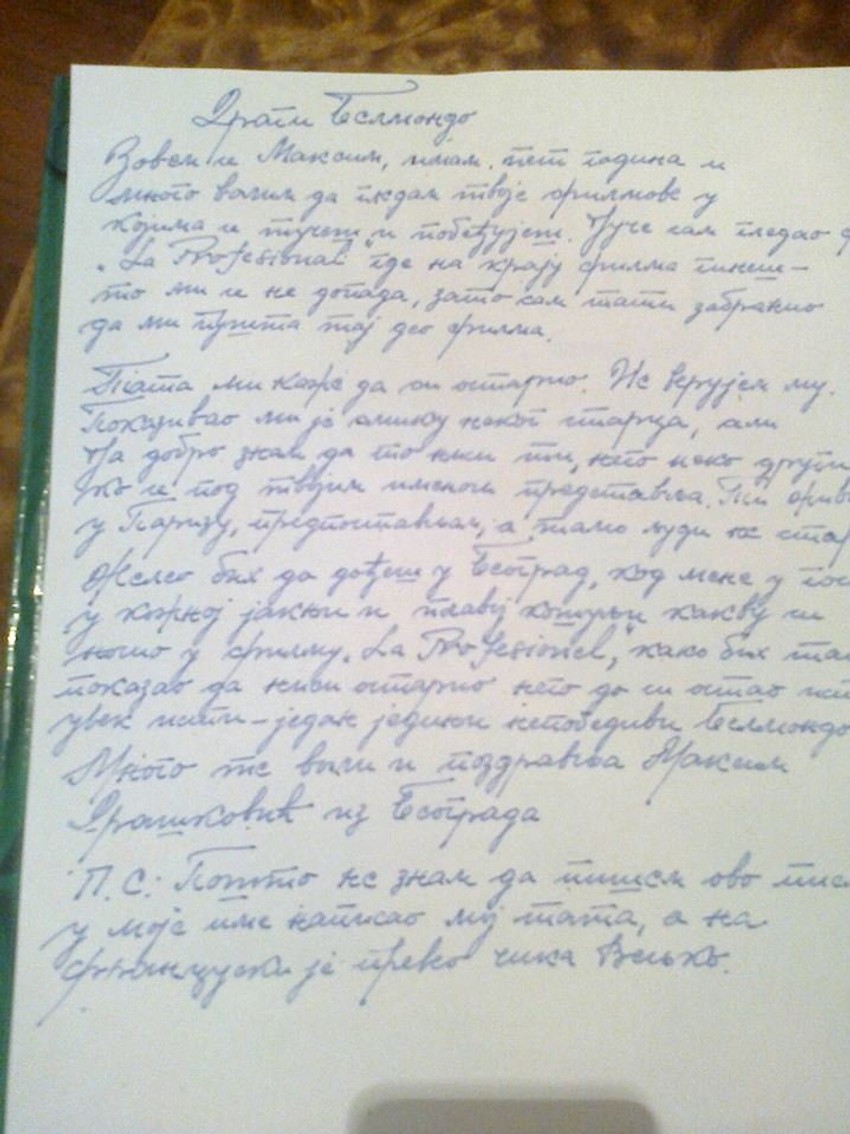 Драги Белмондо
Зовем се Максим, имам пет година и
много волим да гледам твоје филмове у
којима се тучеш и побеђујеш. Јуче сам гледао
"La Profesional" где на крају филма гинеш –
то ми се не допада, зато сам тати забранио
да ми пушта тај део филма.
Тата ми каже да си остарио. Не верујем му.
Показивао ми је слику неког старца, али
Ја добро знам да то ниси ти, него неко други
ко се под твојим именом представља. Ти
у Паризу, предпостављам, а тамо људи не
Желео бих да дођеш у Београд, код мене у
у кожној јакни и плавој кошуљи какву си
носио у филму "La Profesionel", како бих
показао да ниси остарио него да си остао
увек исти – један једини непобедиви Белмондо
Много те воли и поздравља Максим
Драшковић из Београда
П.С: Пошто не знам да пишем ово
у моје име написао мој тата, а на
француски је превео чика Вељко.